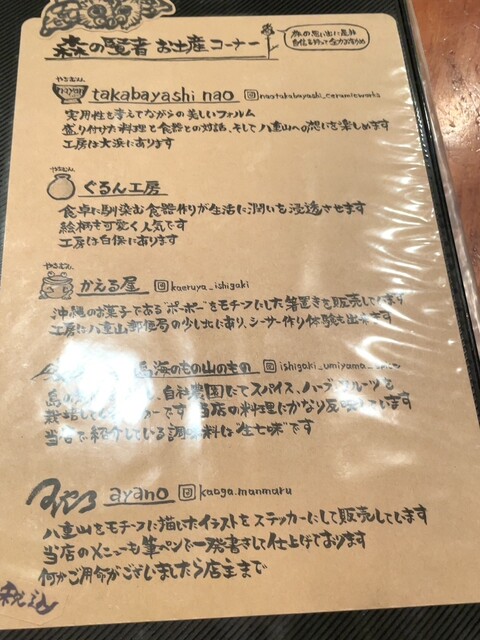 森の賢者 お土産コーナー
旅の思い出に是非
やちむん
takabayashi nao naotakabayashi_ceramicworks
実用性を考えてながらの美しいフォルム
盛り付けた料理と食器との対話、そして八重山への想いを楽しめます
工房は大浜にあります
やちむん
ぐるん工房
食卓に馴染む食器作りが生活に潤いを浸透させます
絵柄も可愛く人気です
工房は白保にあります
やちむん
かえる屋 kaeruya_ishigaki
沖縄のお菓子である"ポーポー"をモチーフにした箸置きを販売してます
工房は八重山郵便局の少し北にあり、シーサー作り体験も出来ます
島海のもの山のもの ishigaki_umiyama_
島の 自社農園にてスパイス、ハーブ、フルーツを
栽培して です 当店の料理にかなり反映しています
当店で紹介している調味料は"生七味"です
ayano kaoga.manmaru
八重山をモチーフに描いたイラストをステッカーにして販売しています
当店のメニューも筆ペンで一発書きして仕上げております
何かご用命がございましたら店主まで
税込み